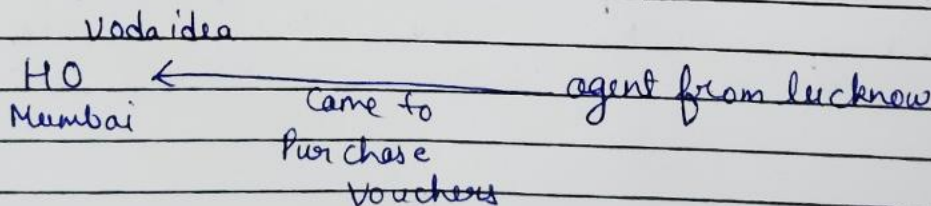 Vodaidea
HO ← agent from lucknow
Mumbai Came to
Purchase
Vouchers